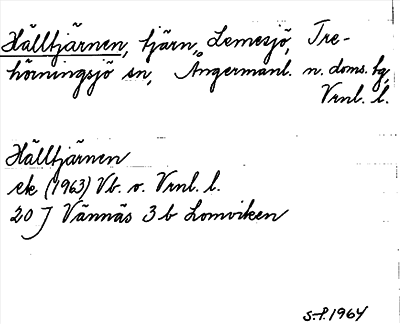 Hälltjärnen, tjärn, Lemesjö, Tre-
hörningsjö sn, Ångermanl. n. doms. hg,
Vrnl. l.
Hälltjärnen
ek (1963) Vb. o. Vrnl. l.
20 J Vännäs 3 b Lomviken
S-P. 1964